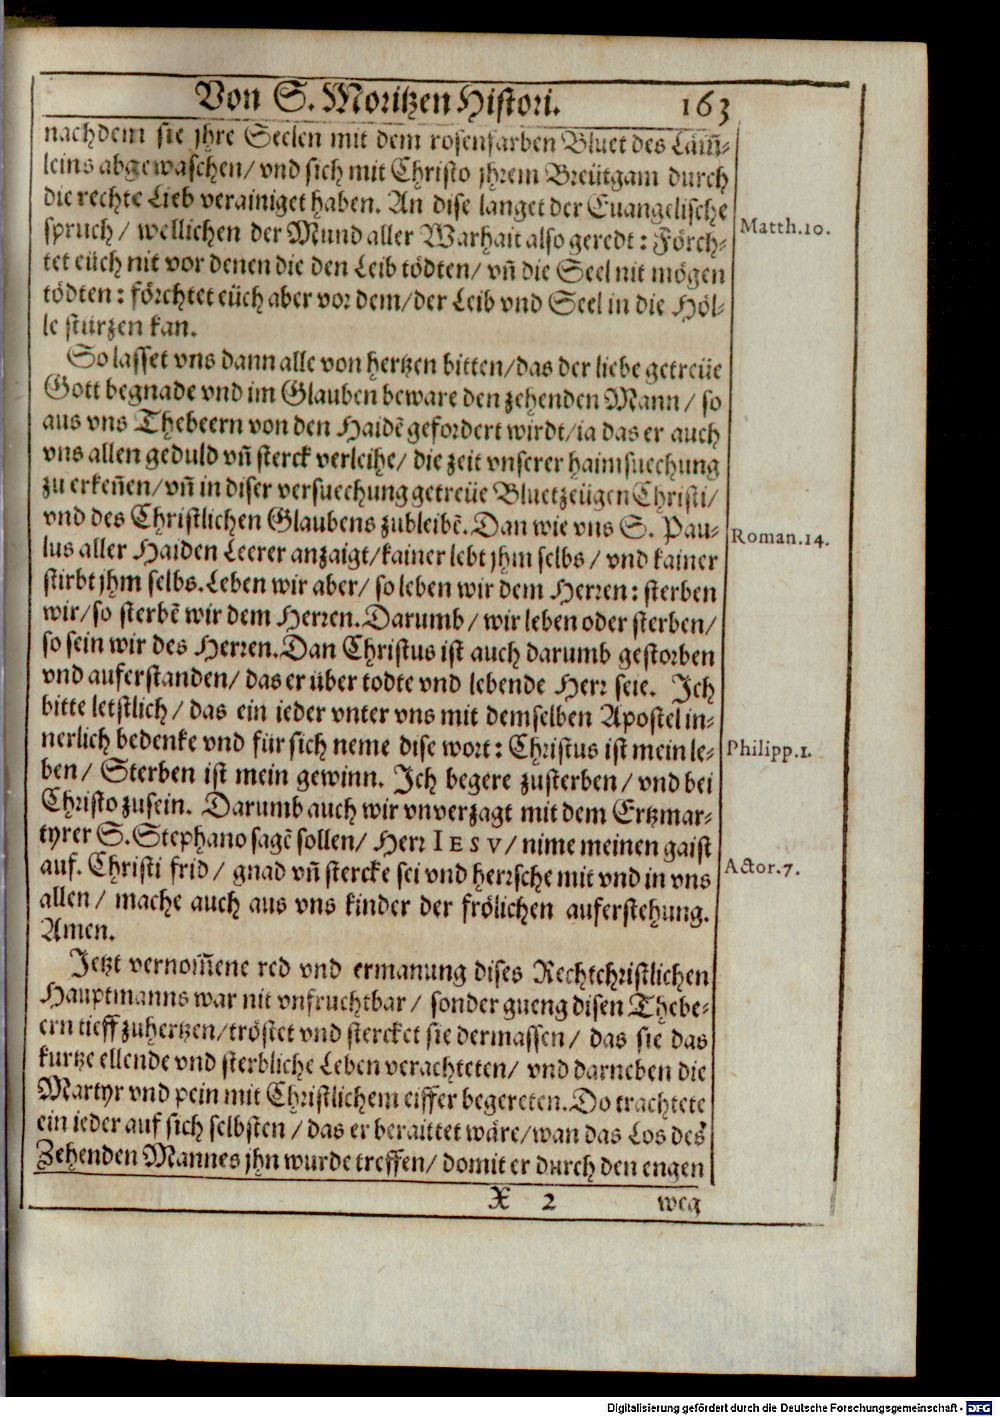 Von S. Moritzen Histori. 163
nachdem sie jhre Seelen mit dem rosenfarben Bluet des Läm̃-
leins abgewaschen/ vnd sich mit Christo jhrem Breütgam durch
die rechte Lieb verainiget haben. An dise langet der Euangelische
spruch/ wellichen der Mund aller Warhait also geredt: Förch-
Matth.10.
tet eüch nit vor denen die den Leib tödten/ vñ die Seel nit mögen
tödten: förchtet eüch aber vor dem/ der Leib vnd Seel in die Höl-
le stürzen kan.
So lasset vns dann alle von hertzen bitten/ das der liebe getreüe
Gott begnade vnd im Glauben beware den zehenden Mann/ so
aus vns Thebeern von den Haidẽ gefordert wirdt/ ia das er auch
vns allen geduld vñ sterck verleihe/ die zeit vnserer haimsuechung
zu erkeñen/ vñ in diser versuechung getreüe Bluetzeügen Christi/
vnd des Christlichen Glaubens zubleibẽ. Dan wie vns S. Pau-
Roman.14.
lus aller Haiden Leerer anzaigt/ kainer lebt jhm selbs/ vnd kainer
stirbt jhm selbs. Leben wir aber/ so leben wir dem Herren: sterben
wir/ so sterbẽ wir dem Herren. Darumb/ wir leben oder sterben/
so sein wir des Herren. Dan Christus ist auch darumb gestorben
vnd auferstanden/ das er über todte vnd lebende Herr seie. Ich
bitte letstlich/ das ein ieder vnter vns mit demselben Apostel in-
nerlich bedenke vnd für sich neme dise wort: Christus ist mein le-
Philipp.1.
ben/ Sterben ist mein gewinn. Ich begere zusterben/ vnd bei
Christo zusein. Darumb auch wir vnverzagt mit dem Ertzmar-
tyrer S. Stephano sagẽ sollen/ Herr IESV/ nime meinen gaist
Actor.7.
auf. Christi frid/ gnad vñ stercke sei vnd herrsche mit vnd in vns
allen/ mache auch aus vns kinder der frölichen auferstehung.
Amen.
Jetzt vernom̃ene red vnd ermanung dises Rechtchristlichen
Hauptmanns war nit vnfruchtbar/ sonder gueng disen Thebe-
ern tieff zuhertzen/ tröstet vnd stercket sie dermassen/ das sie das
kurtze ellende vnd sterbliche Leben verachteten/ vnd darneben die
Martyr vnd pein mit Christlichem eiffer begereten. Do trachtete
ein ieder auf sich selbsten/ das er beraittet wäre/ wan das Los des
Zehenden Mannes jhn wurde treffen/ domit er durch den engen
X 2 weg
Digitalisierung gefördert durch die Deutsche Forschungsgemeinschaft - DFG